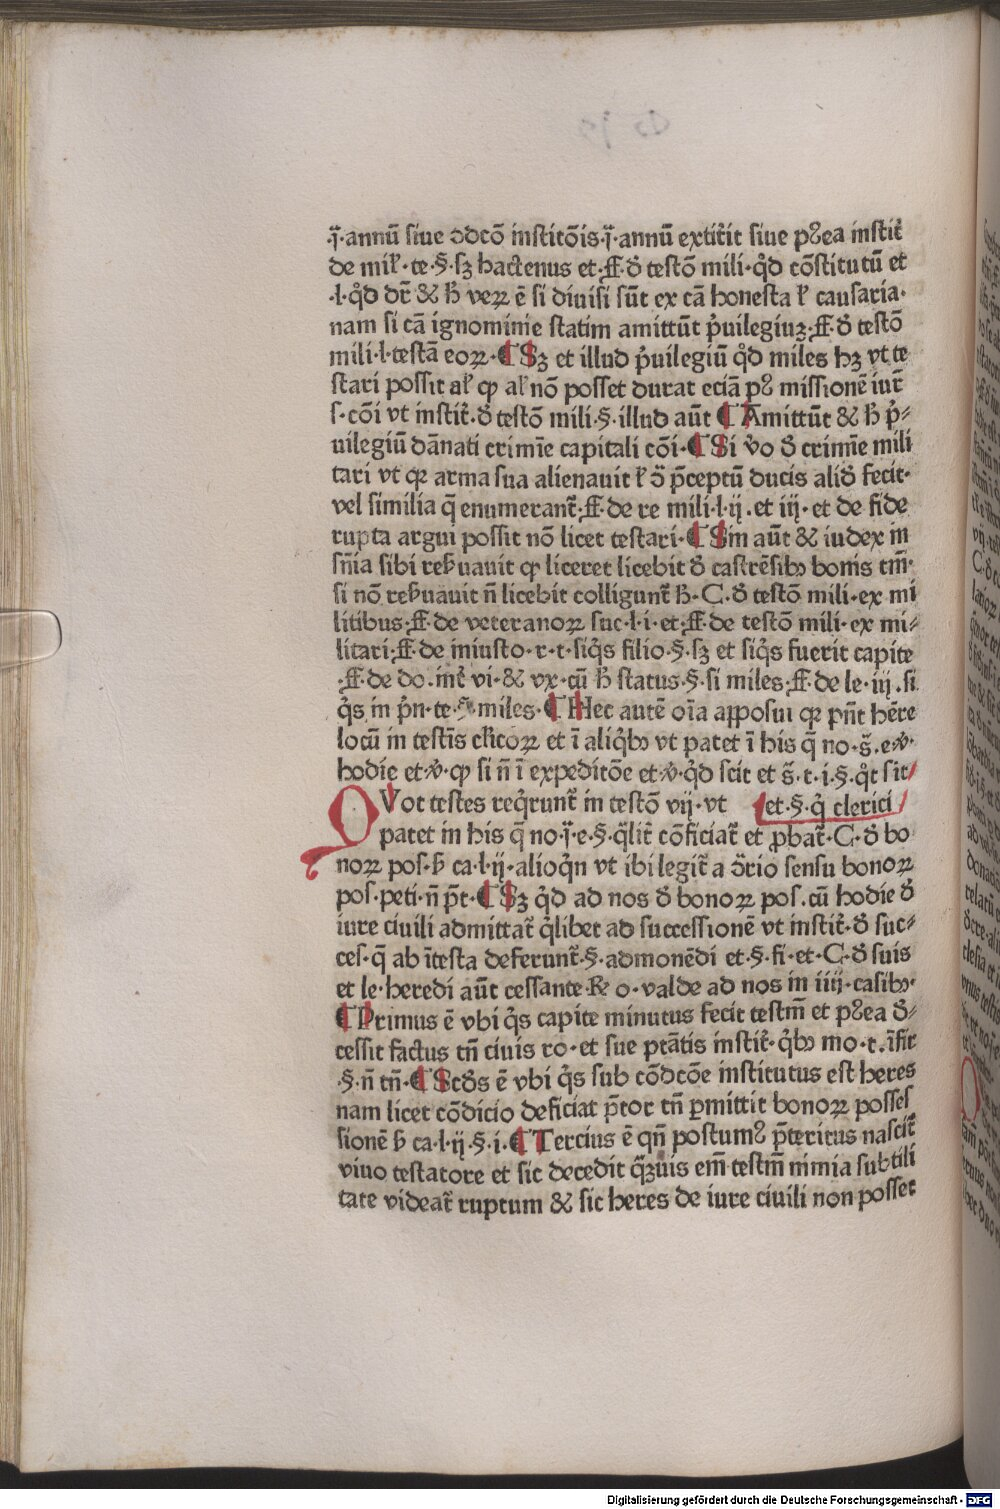 .i̅.annū siue ɔdcō institōis.i̅.annū extitit̉ siue pꝰea instit̉
de mił.te.§.sꝫ hactenus et.ff.đ testō mili.qđ cōstitutū et
.l.qđ dr̄ & ħ veꝝ ē si diuisi sūt ex cā honesta ł causaria.
nam si cā ignominie statim amittūt p̉uilegiuꝫ.ff.đ testō
mili.l.testā eoꝝ.¶ Sꝫ et illud p̉uilegiū qđ miles hꝫ vt te
stari possit ał ꝙ ał nō posset durat eciā pꝰ missionē iur̄
s.cōi vt instit̉.đ testō mili.§.illud aūt ¶ Amittūt & ħ p̉⸗
uilegiū dānati crimīe capitali cōi.¶ Si v̉o đ crimīe mili
tari vt qꝛ arma sua alienauit ł ɔ̄ p̄ceptū ducis aliđ fecit.
vel similia q̄ enumerant̉.ff.de re mili.l.ij.et iij.et de fide
rupta argui possit nō licet testari.¶ Sin aūt & iudex in
sn̄ia sibi reẜuauit ꝙ liceret licebit đ castrēsibꝫ bonis tm̄.
si nō reẜuauit n̄ licebit colligunt̉ ħ.C.đ testō mili.ex mi
litibus.ff.de veteranoꝝ suc.l.i.et.ff.de testō mili.ex mi⸗
litari.ff.de iniusto.r.t.siq̉s filio.§.sꝫ et siq̉s fuerit capite
.ff.de do.int̉ vi.& vx.cū ħ status.§.si miles.ff.de le.iij.si
q̉s in p̉n.te.§.miles.¶ Hec autē oīa apposui qꝛ pn̄t hēre
locū in testīs clīcoꝝ et ī aliq̉bꝫ vt patet ī his q̄ no.s̄.e.v̉.
hodie et.v̉.ꝙ si n̄ ī expeditōe et.v̉.qđ scit et s̄.t.i.§.q̉t sit
QVot testes req̉runt̉ in testō vij.vt et.§.q̉ clerici
patet in his q̄ no.i̅.e.§.q̄lit̉ cōficiat̉ et ꝓbat̉.C.đ bo
noꝝ pos.ẜ ca.l.ij.alioq̉n vt ibi legit̉ a ɔ̄rio sensu bonoꝝ
pos.peti.n̄ p̄t.¶ Sꝫ qđ ad nos đ bonoꝝ pos.cū hodie đ
iure ciuili admittat̉ q̉libet ad successionē vt instit̉.đ suc⸗
ces.q̄ ab ītesta deferunt̉.§.admonēdi et.§.fi.et.C.đ suis
et le.heredi aūt cessante.℞ o.valde ad nos in iiij.casibꝫ.
¶ Primus ē vbi q̉s capite minutus fecit testm̄ et pꝰea đ⸗
cessit factus tn̄ ciuis ro.et sue ptātis instit̉.q̉bꝫ mo.t.īfir̉
.§.n̄ tn̄.¶ Scđs ē vbi q̉s sub cōdcōe institutus est heres
nam licet cōdicio deficiat p̄tor tn̄ ꝑmittit bonoꝝ posses
sionē ẜ ca.l.ij.§.i.¶ Tercius ē qn̄ postumꝰ p̄teritus nascit̉
viuo testatore et sic decedit q̄ꝫuis em̄ testm̄ nimia subtili
tate videat̉ ruptum & sic heres de iure ciuili non posset
Digitalisierung gefördert durch die Deutsche Forschungsgemeinschaft - DFG